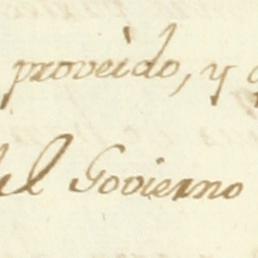 proveido, y
del Govierno